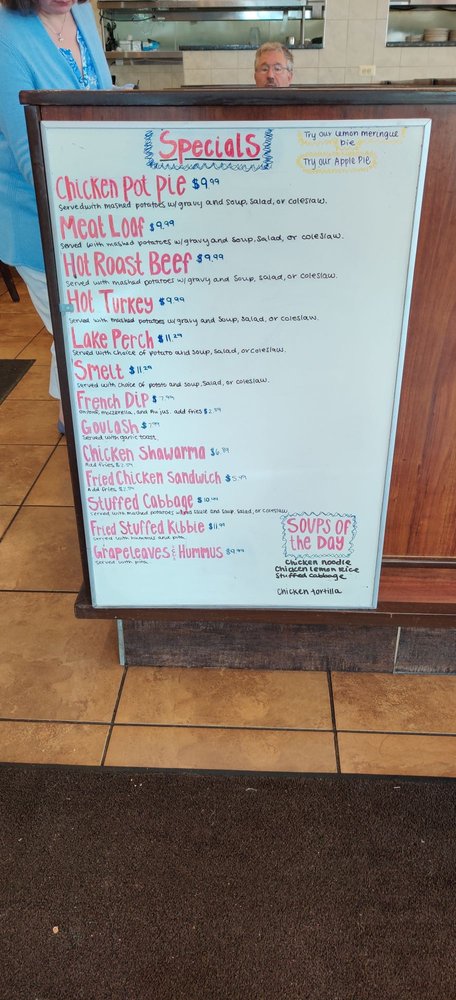 Specials
Try our lemon meringue
pie
Try our Apple Pie
Chicken Pot Pie $9.99
Served with mashed potatoes w/gravy and soup, salad, or coleslaw.
Meat Loaf $9.99
Served with mashed potatoes w/gravy and soup, salad, or coleslaw.
Hot Roast Beef $9.99
Served with mashed potatoes w/gravy and soup, salad, or coleslaw.
Hot Turkey $9.99
Served with mashed potatoes w/gravy and soup, salad, or coleslaw.
Lake Perch $11.29
Served with choice of potato and soup, salad, or coleslaw.
Smelt $11.29
Served with choice of potato and soup, salad, or coleslaw.
French Dip $7.99
onions, mozzerella, and Au jus. add fries $2.59
Goulash $7.99
Served with garlic toast.
Chicken Shawarma
Add fries
Fried Chicken Sandwich $5.99
Add fries
Stuffed Cabbage
Served with mashed potatoes and soup, salad, or coleslaw
Fried Stuffed Kibbie $11.99
Served with hummus and pita
Grapeleaves & Hummus $9.99
Served with pita
Soups of
the Day
Chicken noodle
Chicken lemon rice
Stuffed cabbage
Chicken tortilla